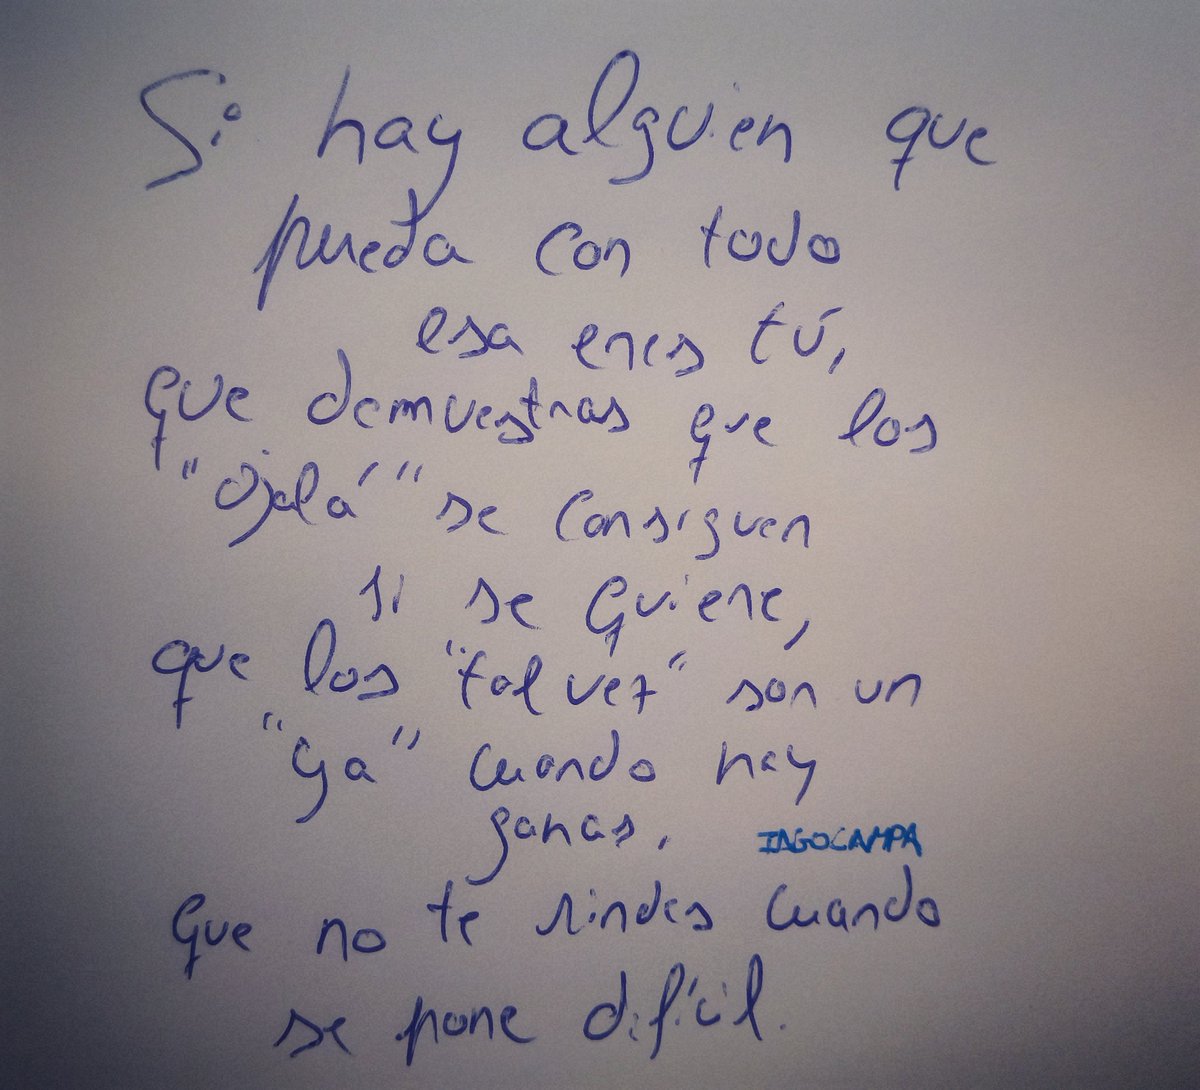 Si hay alguien que
pueda con todo
esa eres tú,
que demuestras que los
"ojalá" se consiguen
si se quiere,
que los "tal vez" son un
"ya" cuando hay
ganas.
IAGOCAMPA
que no te rindes cuando
se pone difícil.